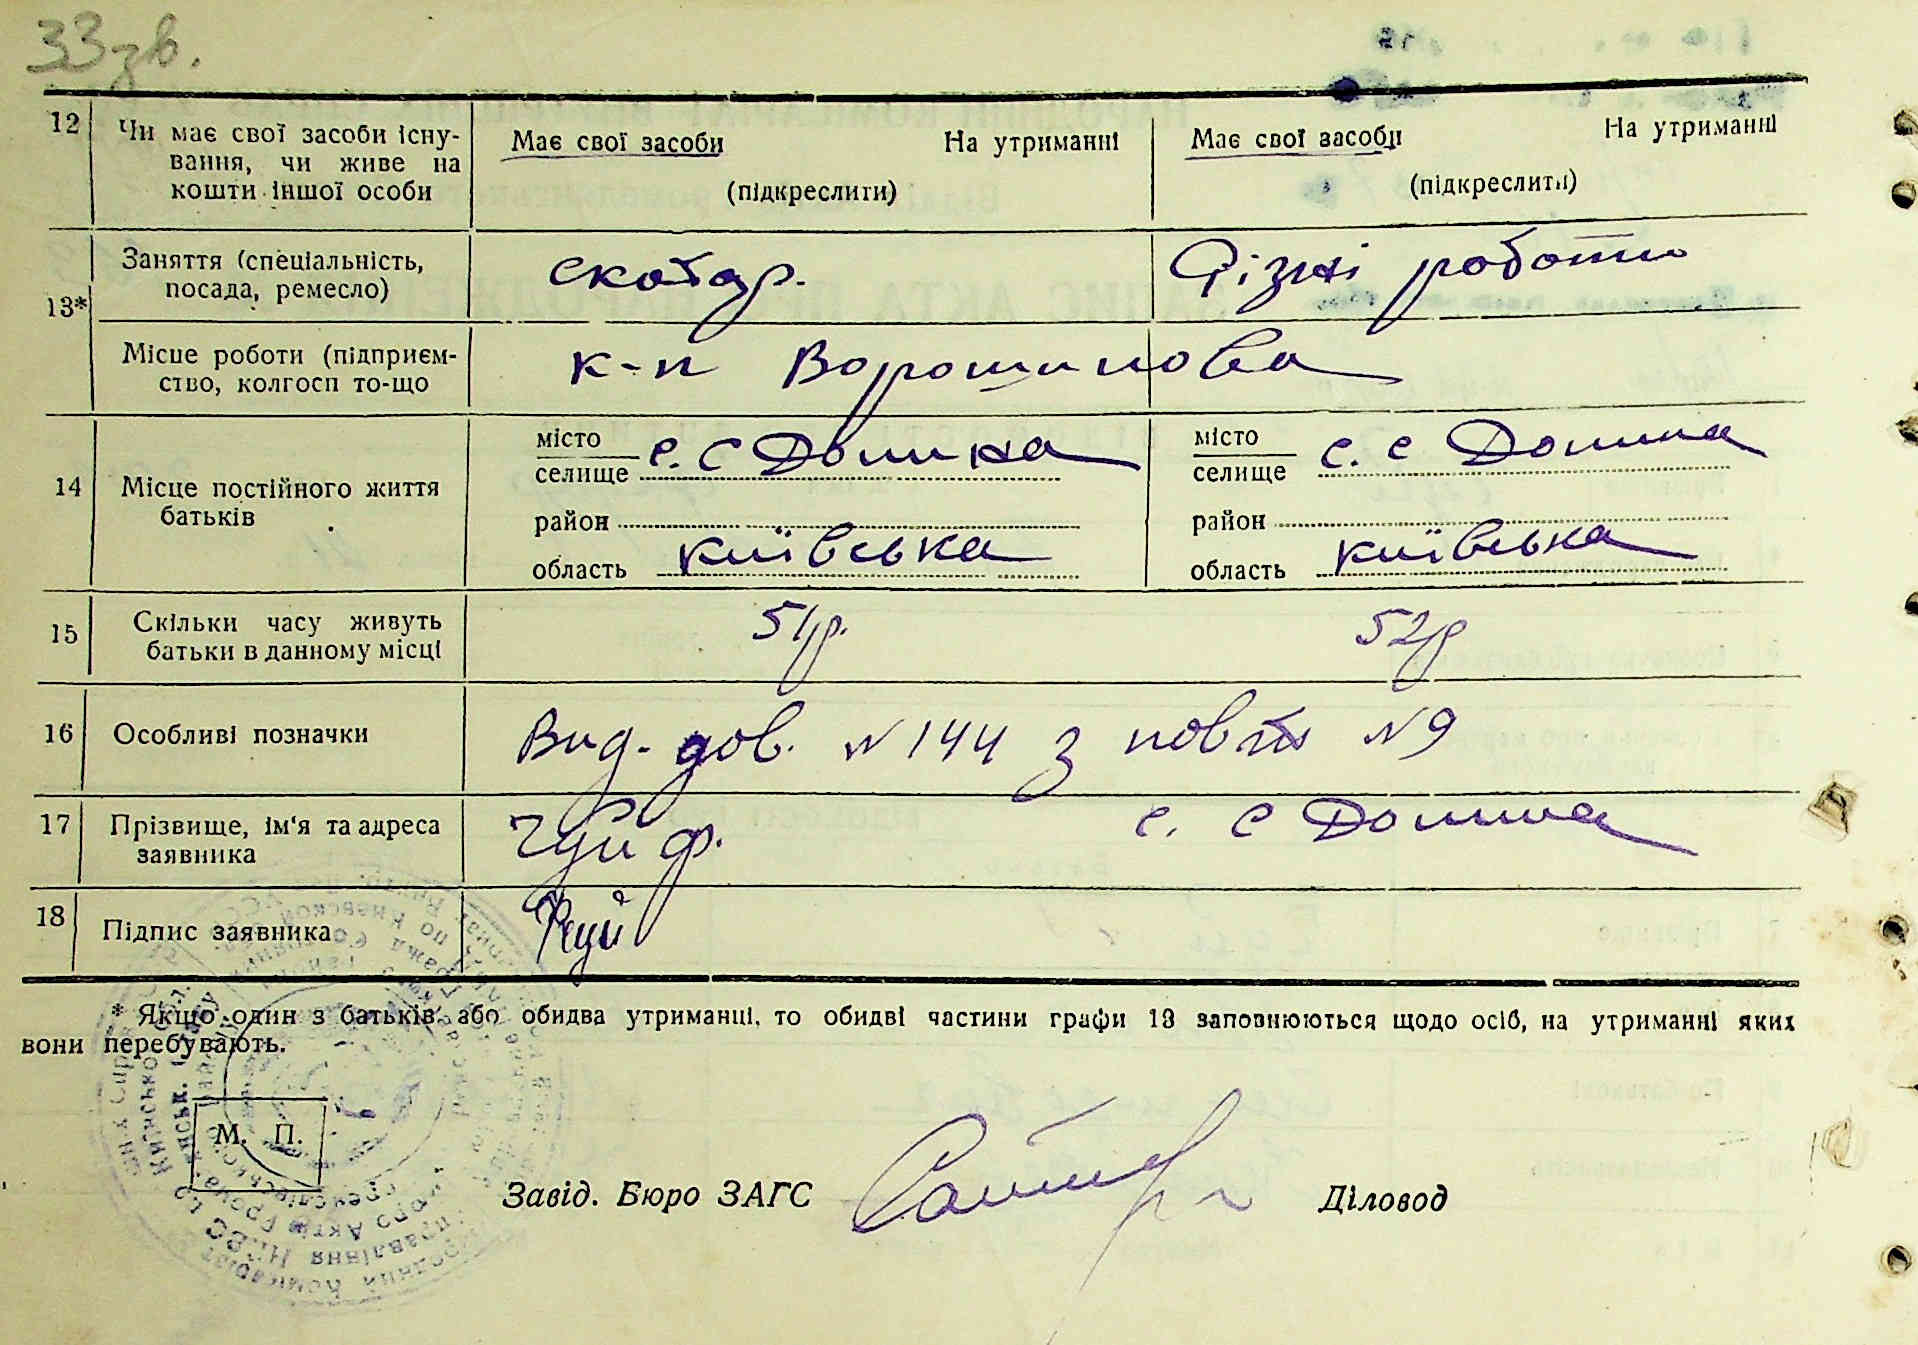 33 зв.
12 Чи має свої засоби існу-
вання, чи живе на
кошти іншої особи
Має свої засоби На утриманні
(підкреслити)
Має свої засоби На утриманні
(підкреслити)
13* Заняття (спеціальність,
посада, ремесло)
скотар.
Різні роботи
Місце роботи (підприєм-
ство, колгосп то-що
к-п Ворошилова
14 Місце постійного життя
батьків
місто
селище с. с Долина
район
область київська
місто
селище с. с Долина
район
область київська
15 Скільки часу живуть
батьки в данному місці
51 р.
52 р
16 Особливі позначки
Вид. дов. N 144 з N 9
17 Прізвище, ім'я та адреса
заявника
Чуй Ф. с. с Долина
18 Підпис заявника
* Якщо один з батьків або обидва утриманці, то обидві частини графи 13 заповнюються щодо осіб, на утриманні яких
вони перебувають.
М. П.
Завід. Бюро ЗАГС Діловод